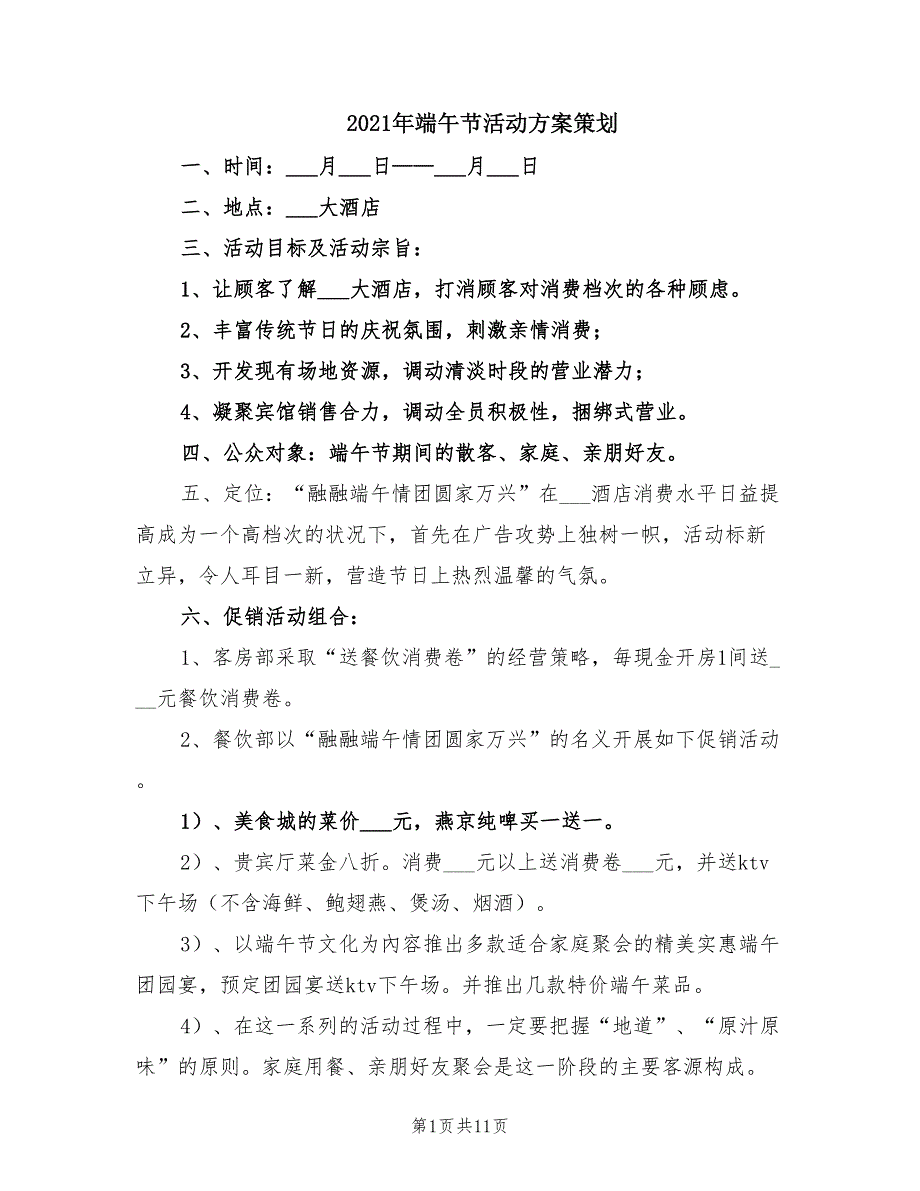 2021年端午节活动方案策划
一、时间：___月___日——___月___日
二、地点：___大酒店
三、活动目标及活动宗旨：
1、让顾客了解___大酒店，打消顾客对消费档次的各种顾虑。
2、丰富传统节日的庆祝氛围，刺激亲情消费；
3、开发现有场地资源，调动清淡时段的营业潜力；
4、凝聚宾馆销售合力，调动全员积极性，捆绑式营业。
四、公众对象：端午节期间的散客、家庭、亲朋好友。
五、定位：“融融端午情团圆家万兴”在___酒店消费水平日益提
高成为一个高档次的状况下，首先在广告攻势上独树一帜，活动标新
立异，令人耳目一新，营造节日上热烈温馨的气氛。
六、促销活动组合：
1、客房部采取“送餐饮消费卷”的经营策略，每現金开房1间送_
__元餐饮消费卷。
2、餐饮部以“融融端午情团圆家万兴”的名义开展如下促销活动
。
1）、美食城的菜价___元，燕京纯啤买一送一。
2）、贵宾厅菜金八折。消费___元以上送消费卷___元，并送ktv
下午场（不含海鲜、鲍翅燕、煲汤、烟酒）。
3）、以端午节文化为内容推出多款适合家庭聚会的精美实惠端午
团园宴，预定团园宴送ktv下午场。并推出几款特价端午菜品。
4）、在这一系列的活动过程中，一定要把握“地道”、“原汁原
味”的原则。家庭用餐、亲朋好友聚会是这一阶段的主要客源构成。
第1页共11页